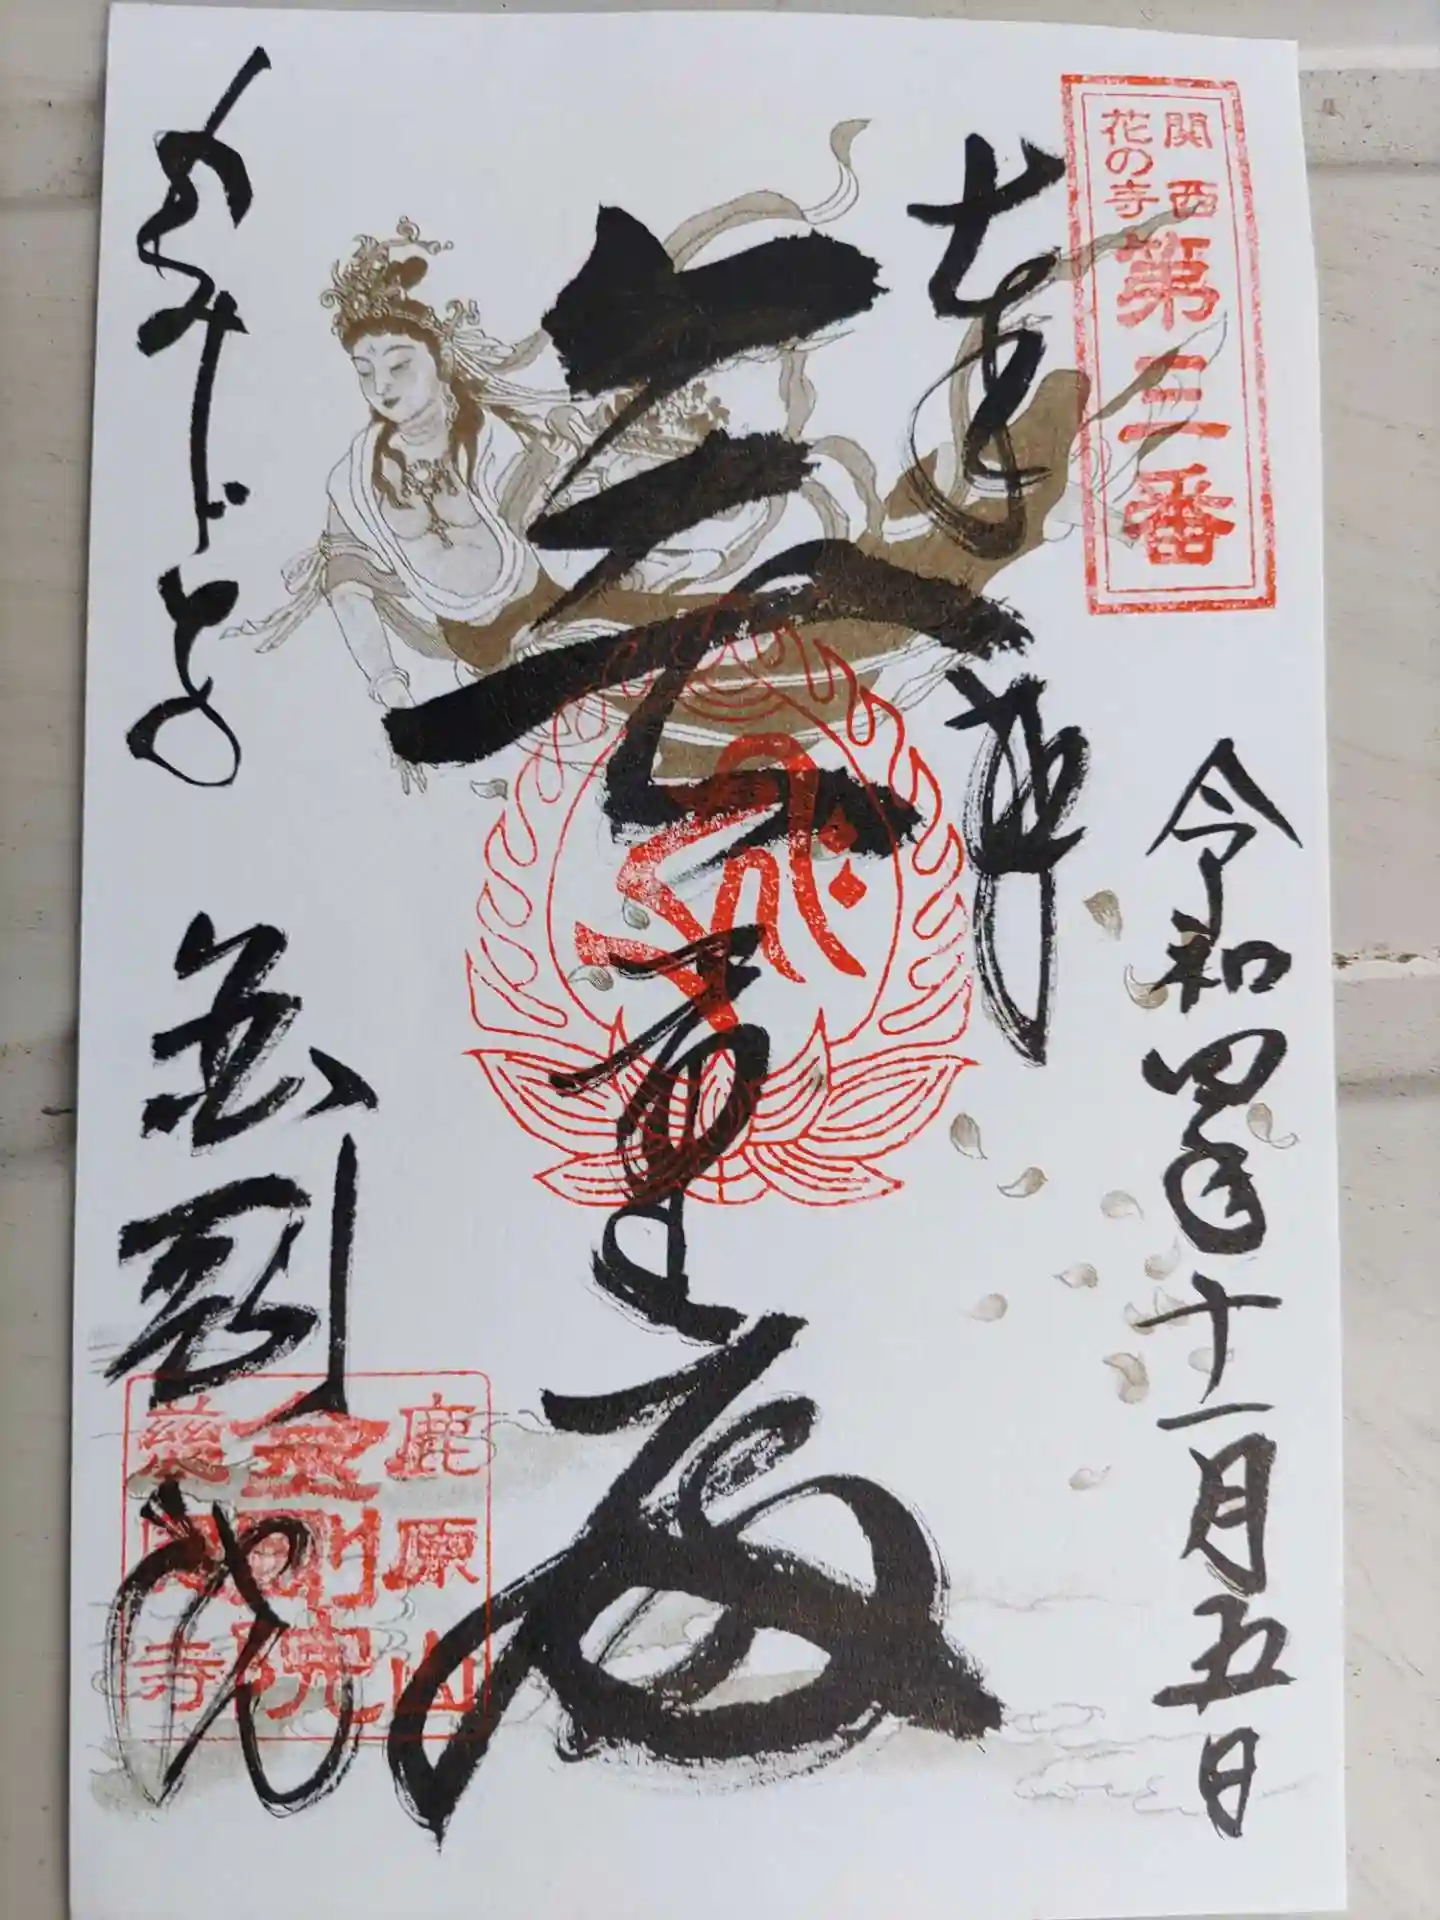 関西
花の寺
第三番
奉拝
令和四年十一月五日
もみじの 金剛院
鹿原山
金剛院
慈恩寺